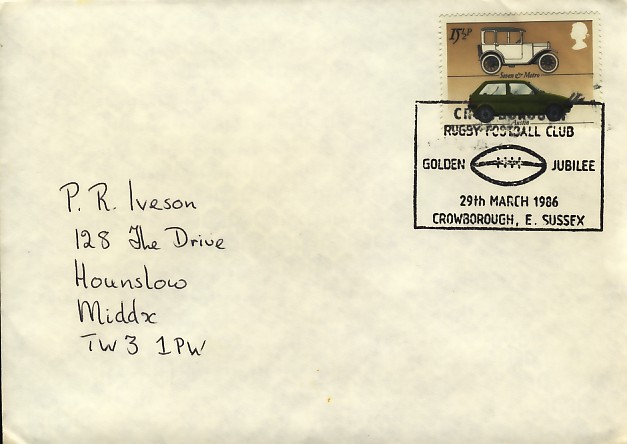 15½p
Seven & Metro
Austin
CROWBOROUGH
RUGBY FOOTBALL CLUB
GOLDEN JUBILEE
29th MARCH 1986
CROWBOROUGH, E. SUSSEX
P. R. Iveson
128 The Drive
Hounslow
Middx
TW3 1PW